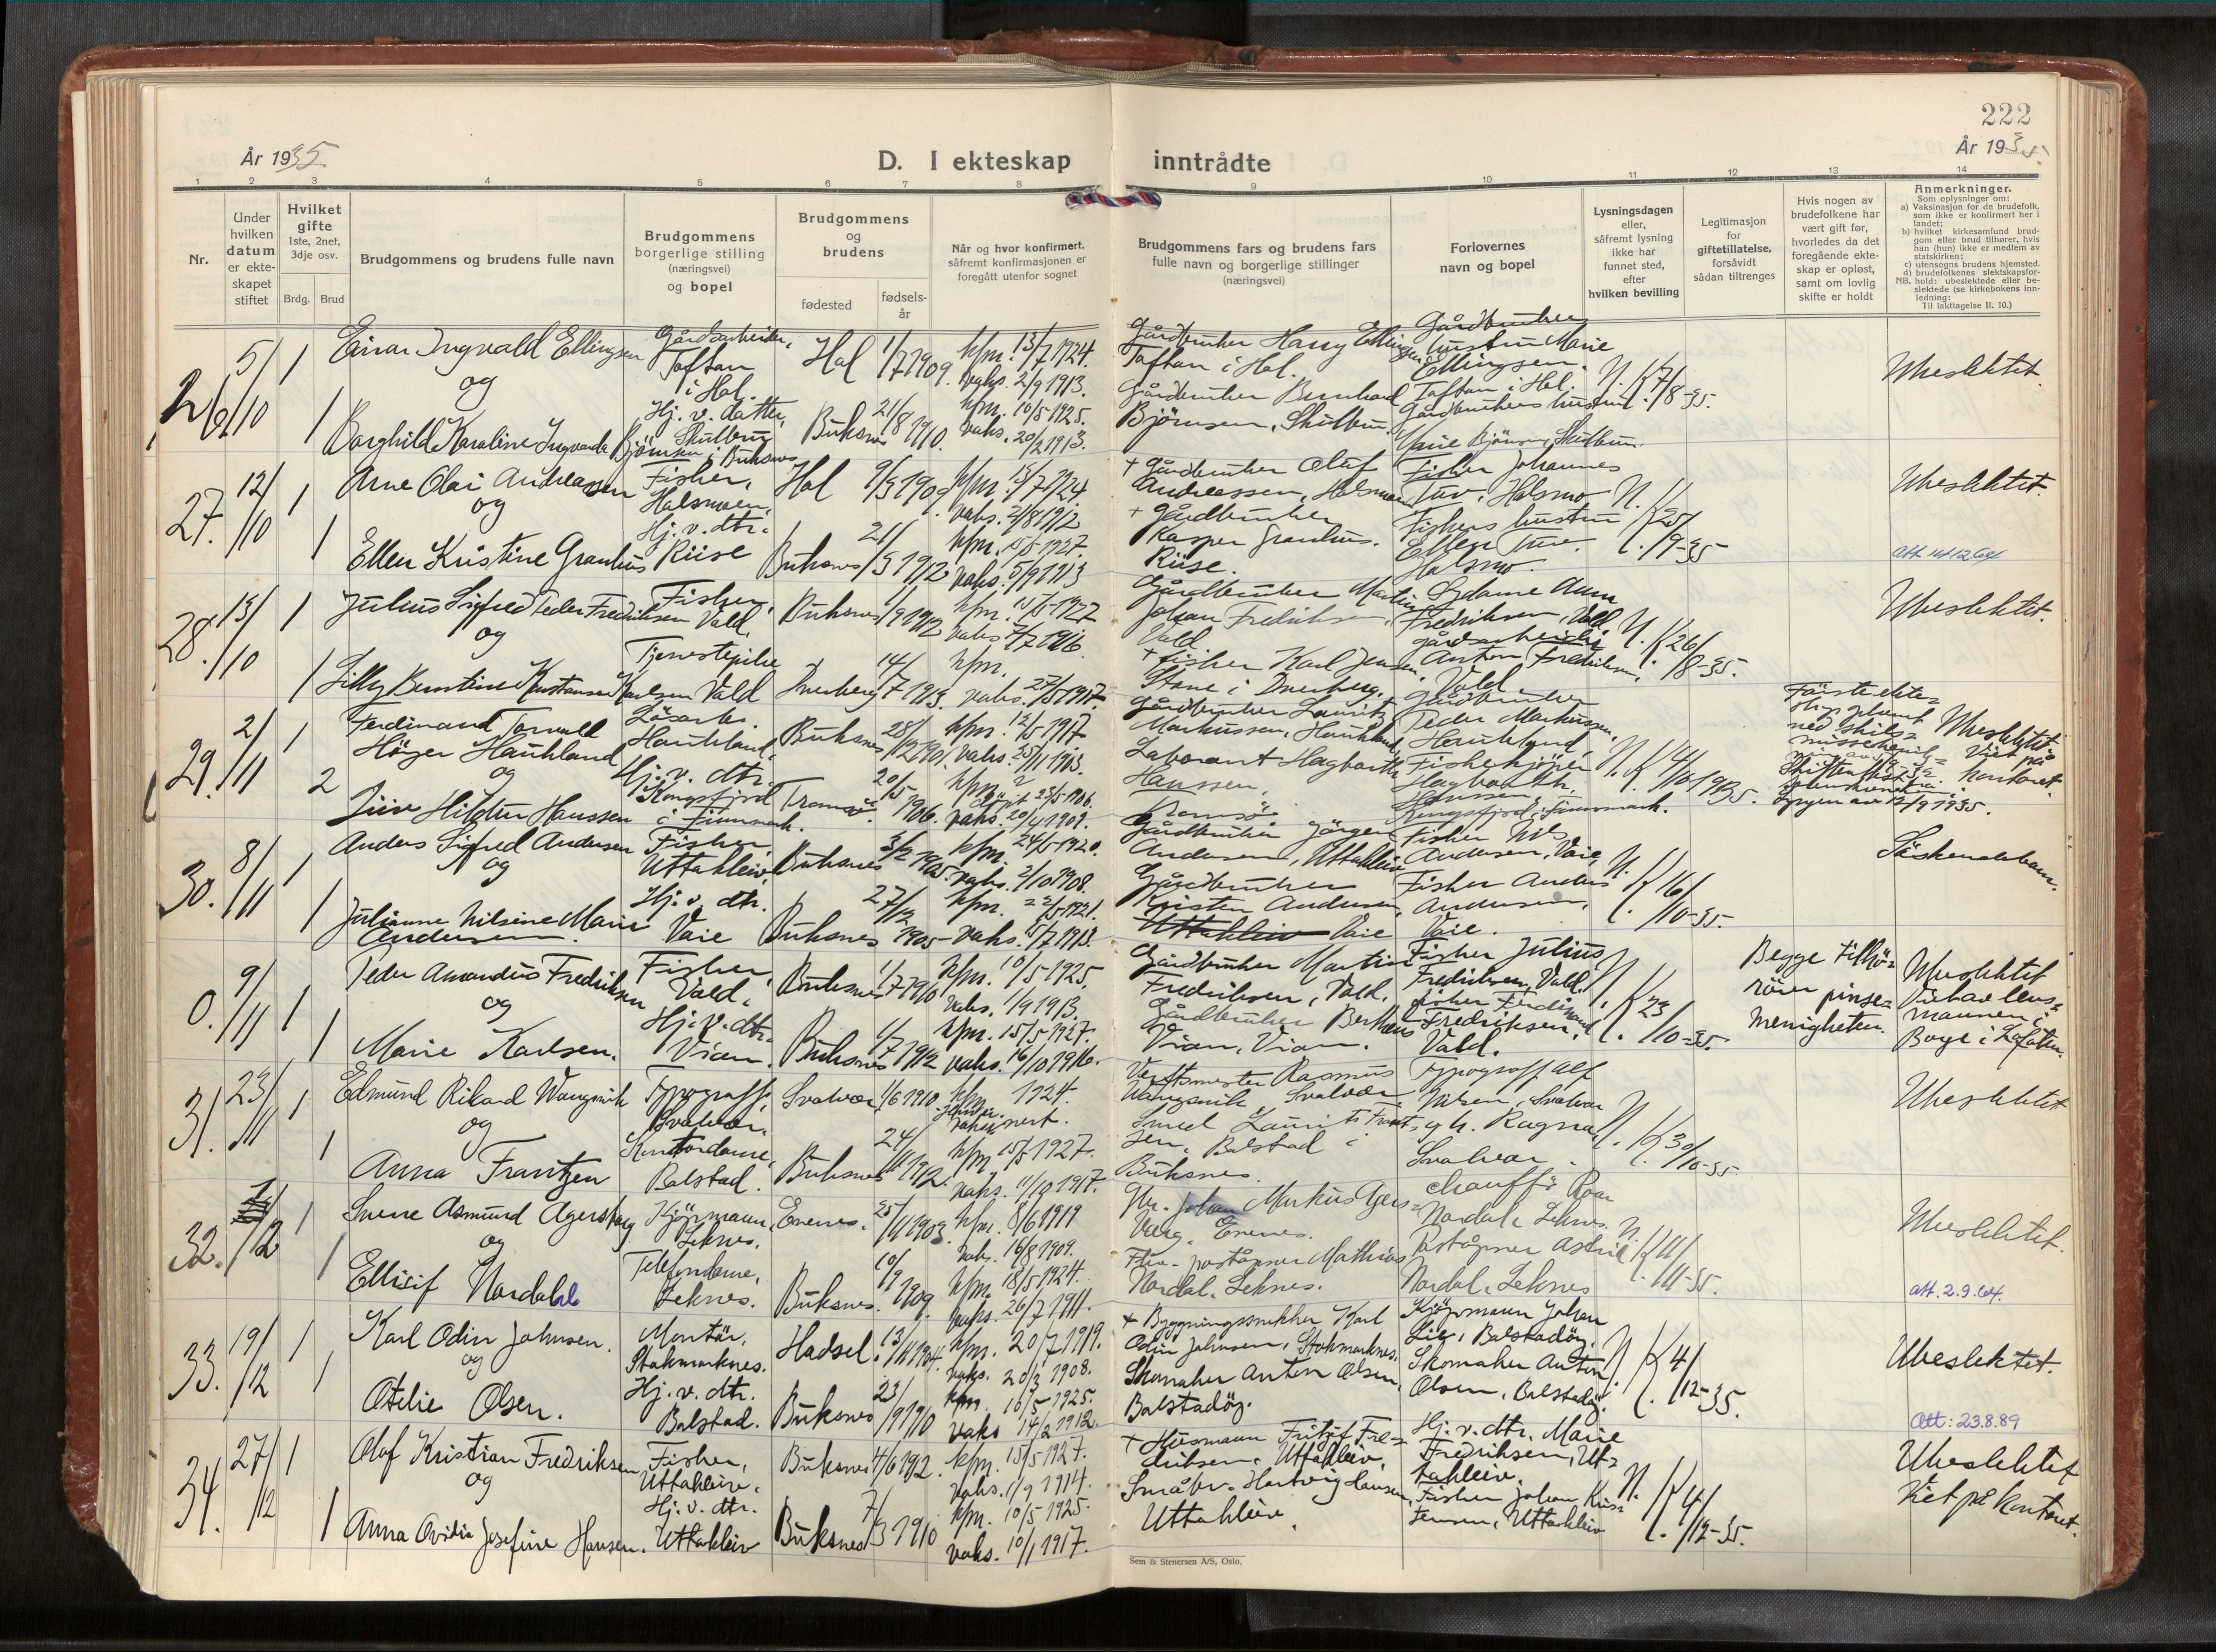 222
År 1935
D. I ekteskap inntrådte
År 1935
1 2 3 4 5 6 7 8 9 10 11 12 13 14
Nr.
Under hvilken datum er ekteskapet stiftet
Hvilket gifte
1ste, 2net, 3dje osv.
Brdg. Brud
Brudgommens og brudens fulle navn
Brudgommens borgerlige stilling (næringsvei) og bopel
Brudgommens og brudens
fødested
fødselsår
Når og hvor konfirmert, såfremt konfirmasjonen er foregått utenfor sognet
Brudgommens fars og brudens fars fulle navn og borgerlige stillinger (næringsvei)
Forlovernes navn og bopel
Lysningsdagen eller, såfremt lysning ikke har funnet sted, efter hvilken bevilling
Legitimasjon for giftetillatelse, forsåvidt sådan tiltrenges
Hvis nogen av brudefolkene har vært gift før, hvorledes da det foregående ekteskap er opløst, samt om lovlig skifte er holdt
Anmerkninger.
Som oplysninger om:
a) Vaksinasjon for de brudefolk, som ikke er konfirmert her i landet;
b) hvilket kirkesamfund brudgom eller brud tilhører, hvis han (hun) ikke er medlem av statskirken;
c) utensogns brudens hjemsted.
d) brudefolkenes slektskapsforhold: ubeslektede eller beslektede (se kirkebokens innledning:
NB. Til iakttagelse II. 10.)
26 5/10 1 Einar Ingvald Ellingsen Gårdsarbeider, Toftan i Hol. Hol 1/7 1909 kfm. 13/7 1924. vaks. 2/9 1913. Gårdbruker Harry Ellingsen Toftan i Hol. Gårdbruker hustru Marie Ellingsen, Toftan i Hol. N.K. 7/8-35. Ubeslektet.
og
1 Borghild Karoline Ingvarda Bjørnsen Hj. v. datter, Skulbru i Buksnes Buksnes 21/8 1910. kfm. 10/5 1925. vaks. 20/2 1913. Gårdbruker Bernhard Bjørnsen, Skulbru. Gårdbrukers hustru Marie Bjørnsen, Skulbru.
27. 12/10 1 Arne Olai Andreassen Fisker, Holsmoen, Hol 9/3 1909. kfm. 13/7 24. vaks. 2/8 1912 + Gårdbruker Oluf Andreassen, Holsmoen Fisker Johannes Tuv, Holsmo N.K. 25/9-35 Ubeslektet.
og
1 Ellen Kristine Granhus Hj. v. dtr. Riise Buksnes 21/3 1912 kfm. 15/5 1927. vaks. 5/9 1913 + Gårdbruker Kasper Granhus. Riise. Fiskers hustru Ellen Tuv. Holsmo. att. 14.12.64
28. 13/10 1 Julius Sigfred Peder Fredriksen Fisker, Vald. Buksnes 1/9 1912 kfm. 15/5 1927 vaks 7/7 1916. Gårdbruker Martin Johan Fredriksen, Vald Sydame Anna Fredriksen, Vald N.K. 26/8-35. Ubeslektet.
og
1 Lilly Berntine Konstanse Karlsen Tjenestepike Vald Dverberg 14/7 1913. kfm. vaks. 27/5 1917. + Fisker Karl Jensen, Stave i Dverberg. gårdsarbeider Anton Fredriksen, Vald
29. 2/11 1 Ferdinand Torvald Höger Haukland Løsarb. Haukland, Buksnes 28/12 1901. kfm. 12/5 1917. vaks. 25/11 1913. Gårdbruker Laurits Markussen, Haukland Gårdbruker Peder Markussen, Haukland, N.K. 4/10 1935. Ubeslektet. Viet på kontoret.
og
2 Hj. v. dtr. Kongsfjord i Finnmark. Tromsø. 20/5 1906. kfm. ? døpt 23/5-1906. vaks. 20/4 1909. Laborant Hagbarth Hanssen, Tromsø Fiskekjøper Hagbarth Hanssen Kongsfjord, Finnmark.
30. 8/11 1 Anders Sigfred Andersen Fisker, Uttakleiv, Buksnes 3/2 1905. kfm. 24/5 1920. vaks. 2/10 1908. Gårdbruker Jørgen Andersen, Uttakleiv Fisker Nils Andersen, Vaie, N.K. 16/10-35. Søskendebarn.
og
1 Julianne Nilsine Marie Andersen. Hj. v. dtr. Vaie Buksnes 27/12 1905 kfm. 22/5 1921. vaks. 5/7 1913. Gårdbruker Kristen Andersen, Uttakleiv Vaie Fisker Anders Andersen, Vaie.
0. 9/11 1 Peder Amandus Fredriksen Fisker, Vald. Buksnes 1/7 1910 kfm. 10/5 1925. vaks. 1/9 1913. Gårdbruker Martin Fredriksen, Vald. Fisker Julius Fredriksen, Vald. N.K. 23/10-35. Begge tilhører pinsemenigheten. Ubeslektet Viet av lensmannen i Borge i Lofoten.
og
1 Marie Karlsen. Hj. v. dtr. Vian. Buksnes 1/7 1912 kfm. 15/5 1927. vaks. 16/10 1916. Gårdbruker Bertheus Vian, Vian. Fisker Ferdinand Fredriksen. Vald.
31. 23/11 1 Edmund Rikard Wangsvik Typograff, Svolvær. Svolvær 1/6 1910 kfm. 1924. Verftsmester Rasmus Wangsvik, Svolvær Typograff Alf Nilsen, Svolvær N.K. 30/10-35. Ubeslektet
og
1 Anna Frantzen Kontordame, Balstad. Buksnes 24/11 1912. kfm. 15/5 1927. vaks. 11/10 1917. Smed Laurits Frantzen, Balstad i Buksnes. Ragna Svolvær.
32. /12 1 Sverre Asmund Agersborg Kjøpmann, Leknes. Evenes. 25/11 1903. kfm. 8/6 1919 vak. 16/8 1909. Gbr. Johan Markus Agersborg. Evenes. Chauffør Roar Nordal, Leknes. N.K. 11/11-35. Ubeslektet.
og
1 Ellisif Nordahl Telefondame, Leknes. Buksnes. 10/9 1909. kfm. 18/5 1924. vaks. 26/7 1911. poståpner Mathias Nordal, Leknes. Poståpner Astrid Nordal, Leknes att. 2.9.64.
33. 19/12 1 Karl Odin Johnsen. Montør, Stokmarknes. Hadsel. 13/11 1904. kfm. 20/7 1919. vaks. 20/3 1908. + Bygningssnekker Karl Odin Johnsen, Stokmarknes. Kjøpmann Johan Lie, Balstadøy. N.K. 4/12-35. Ubeslektet.
og
1 Otelie Olsen. Hj. v. dtr. Balstad. Buksnes 23/9 1910 kfm. 10/5 1925. vaks 14/2 1912. Skomaker Anton Olsen, Balstadøy. Skomaker Anton Olsen, Balstadøy. Att: 23.8.89
34. 27/12 1 Olaf Kristian Fredriksen Fisker, Uttakleiv. Buksnes 4/6 1912. kfm. 15/5 1927. vaks. 1/9 1914. + Husmann Fritjof Fredriksen, Uttakleiv. Hj. v. dtr. Marie Fredriksen, Uttakleiv. N.K. 4/12-35. Ubeslektet Viet på kontoret.
og
1 Anna Ovidia Josefine Hansen. Hj. v. dtr. Uttakleiv Buksnes 7/3 1910 kfm. 10/5 1925. vaks. 10/1 1917. Småbr. Hartvig Hansen, Uttakleiv. Fisker Johan Kristensen, Uttakleiv
Sem & Stenersen A/S, Oslo.